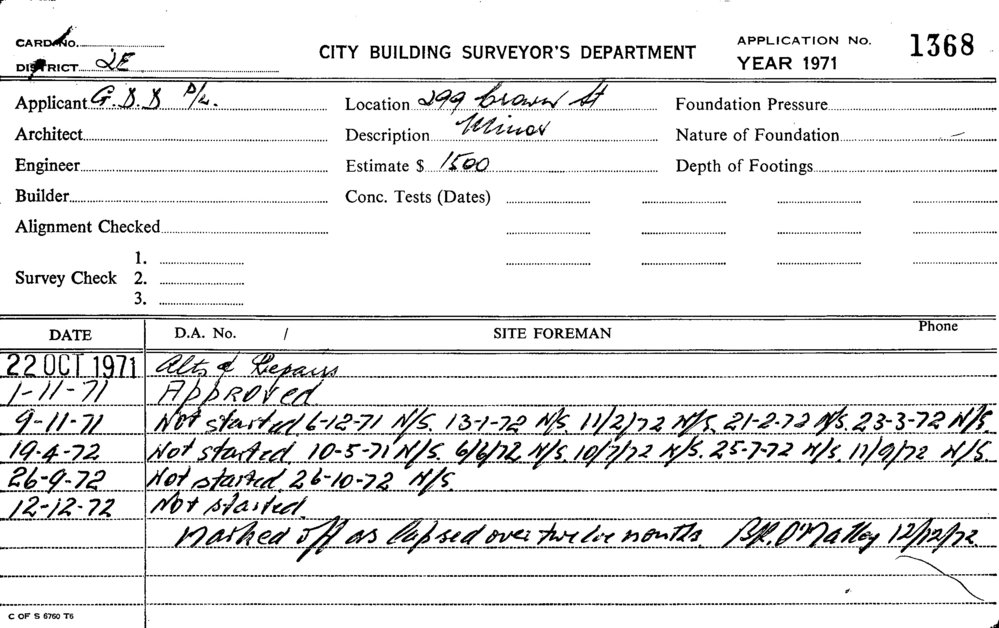 CARD No.
DISTRICT 2E
CITY BUILDING SURVEYOR'S DEPARTMENT
APPLICATION No. 1368
YEAR 1971
Applicant G.D.D P/L.
Location 299 Crown St
Foundation Pressure
Architect
Description Minor
Nature of Foundation
Engineer
Estimate $ 1500
Depth of Footings
Builder
Conc. Tests (Dates)
Alignment Checked
Survey Check 1.
2.
3.
DATE D.A. No. / SITE FOREMAN Phone
22 OCT 1971 Alts & Repairs
1-11-71 APPROVED
9-11-71 Not started 6-12-71 N/S. 13-1-72 N/S. 11/2/72 N/S. 21-2-72 N/S. 23-3-72 N/S.
19-4-72 Not started 10-5-71 N/S. 6/6/72 N/S. 10/7/72 N/S. 25-7-72 N/S. 11/9/72 N/S.
26-9-72 Not started 26-10-72 N/S.
12-12-72 Not started
Marked off as lapsed over twelve months. BR. O'Malley 12/12/72
C OF S 6760 T6